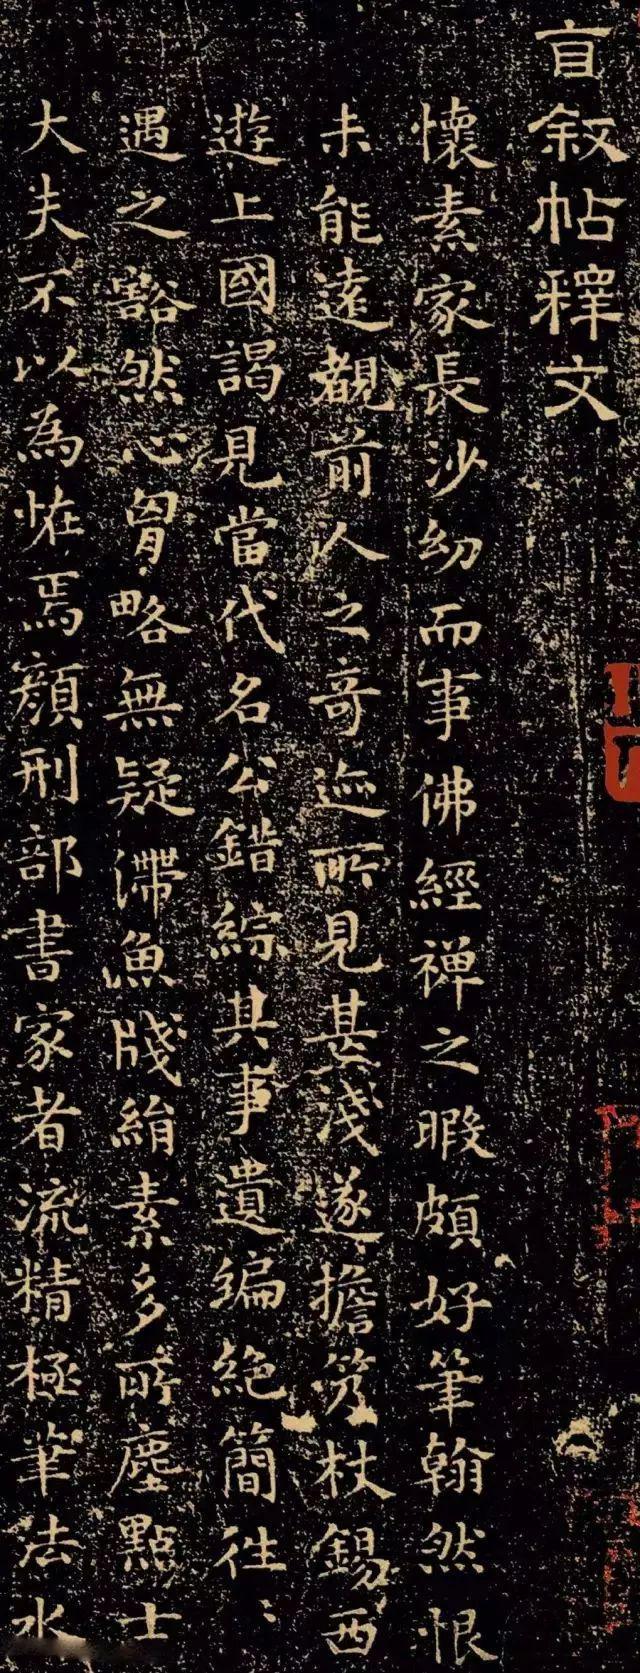 自叙帖釋文
懷素家長沙幼而事佛經禪之暇頗好筆翰然恨
未能遠覩前人之奇迹所見甚淺遂擔笈杖錫西
遊上國謁見當代名公錯綜其事遺編絕簡往〻
遇之豁然心胷略無疑滯魚牋絹素多所塵點士
大夫不以為恠焉顏刑部書家者流精極筆法水